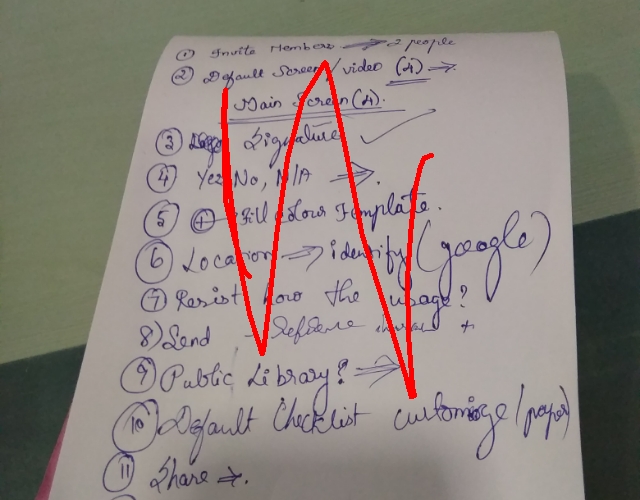 ① Invite Members → 2 people
② Default Screen/video (4) →
Main Screen (4).
③ Signature ✓
④ Yes, No, N/A →.
⑤ + Fill colour Template.
⑥ Location → identify (google)
⑦ Resist how the usage?
8) Send +
⑨ Public Library? →
⑩ Default Checklist customize (paper)
⑪ Share →.